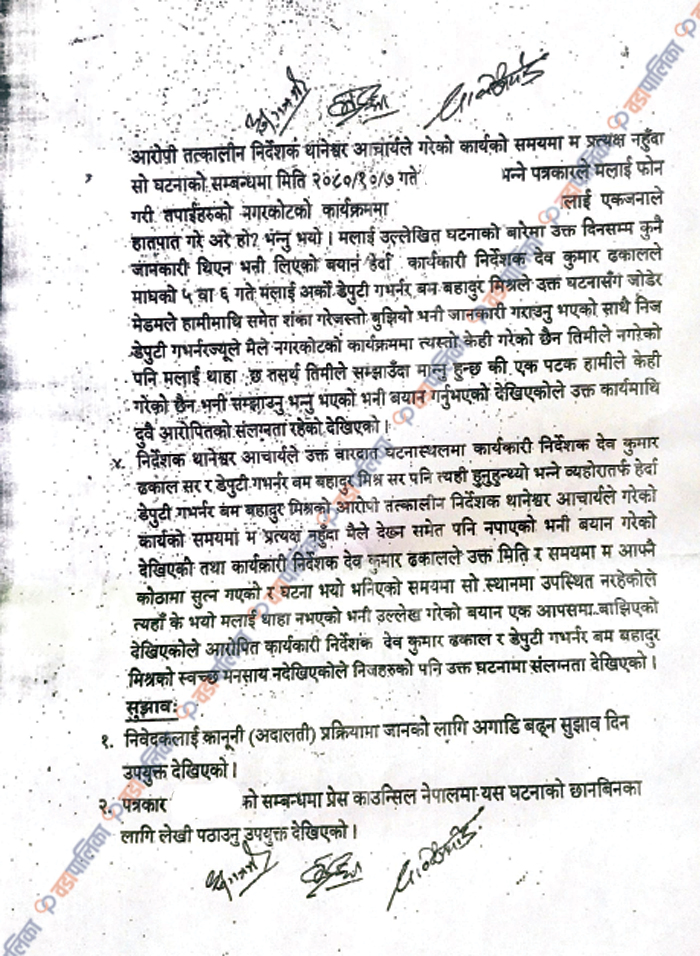 आरोपी तत्कालीन निर्देशक थानेश्वर आचार्यले गरेको कार्यको समयमा म प्रत्यक्ष नहुँदा
सो घटनाको सम्बन्धमा मिति २०८०/१०/७ गते भन्ने पत्रकारले मलाई फोन
गरी तपाईहरुको नगरकोटको कार्यक्रममा लाई एकजनाले
हातपात गरे अरे हो? भन्नु भयो । मलाई उल्लेखित घटनाको बारेमा उक्त दिनसम्म कुनै
जानकारी थिएन भनी लिएको बयान हेर्दा कार्यकारी निर्देशक देव कुमार ढकालले
माघको ५ वा ६ गते मलाई अर्का डेपुटी गभर्नर बम बहादुर मिश्रले उक्त घटनासँग जोडेर
मेडमले हामीमाथि समेत शंका गरेजस्तो बुझियो भनी जानकारी गराउनु भएको साथै निज
डेपुटी गभर्नरज्यूले मैले नगरकोटको कार्यक्रममा त्यस्तो केही गरेको छैन तिमीले नगरेको
पनि मलाई थाहा छ तसर्थ तिमीले सम्झाउँदा मान्नु हुन्छ की एक पटक हामीले केही
गरेको छैन भनी सम्झाउनु भन्नु भएको भनी बयान गर्नुभएको देखिएकोले उक्त कार्यमाथि
दुवै आरोपितको संलग्नता रहेको देखिएको ।
४. निर्देशक थानेश्वर आचार्यले उक्त वारदात घटनास्थलमा कार्यकारी निर्देशक देव कुमार
ढकाल सर र डेपुटी गभर्नर बम बहादुर मिश्र सर पनि त्यही हुनुहुन्थ्यो भन्ने व्यहोरातर्फ हेर्दा
डेपुटी गभर्नर बम बहादुर मिश्रको आरोपी तत्कालीन निर्देशक थानेश्वर आचार्यले गरेको
कार्यको समयमा म प्रत्यक्ष नहुँदा मैले देख्न समेत पनि नपाएको भनी बयान गरेको
देखिएकी तथा कार्यकारी निर्देशक देव कुमार ढकालले उक्त मिति र समयमा म आफ्नै
कोठामा सुत्न गएको र घटना भयो भनिएको समयमा सो स्थानमा उपस्थित नरहेकोले
त्यहाँ के भयो मलाई थाहा नभएको भनी उल्लेख गरेको बयान एक आपसमा बाझिएको
देखिएकोले आरोपित कार्यकारी निर्देशक देव कुमार ढकाल र डेपुटी गभर्नर बम बहादुर
मिश्रको स्वच्छ मनसाय नदेखिएकोले निजहरुको पनि उक्त घटनामा संलग्नता देखिएको ।
सुझाव:
१. निवेदकलाई कानूनी (अदालती) प्रक्रियामा जानको लागि अगाडि बढ्न सुझाव दिन
उपयुक्त देखिएको ।
२. पत्रकार को सम्बन्धमा प्रेस काउन्सिल नेपालमा यस घटनाको छानबिनका
लागि लेखी पठाउनु उपयुक्त देखिएको ।
वडापालिका